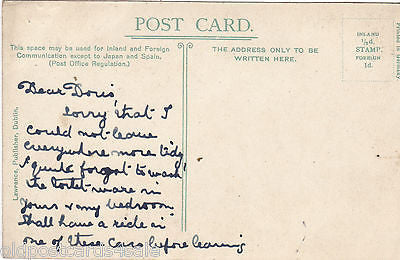 POST CARD.
This space may be used for Inland and Foreign
Communication except to Japan and Spain.
(Post Office Regulation.)
THE ADDRESS ONLY TO BE
WRITTEN HERE.
INLAND
½d.
STAMP.
FOREIGN
1d.
Printed in
Lawrence, Publisher, Dublin.
Dear Doris
sorry that I
could not leave
everywhere more tidy
I quite forgot to wash
the toilet-ware in
yours & my bedroom
Shall have a ride in
one of these cars before leaving
oldpostcards4sale